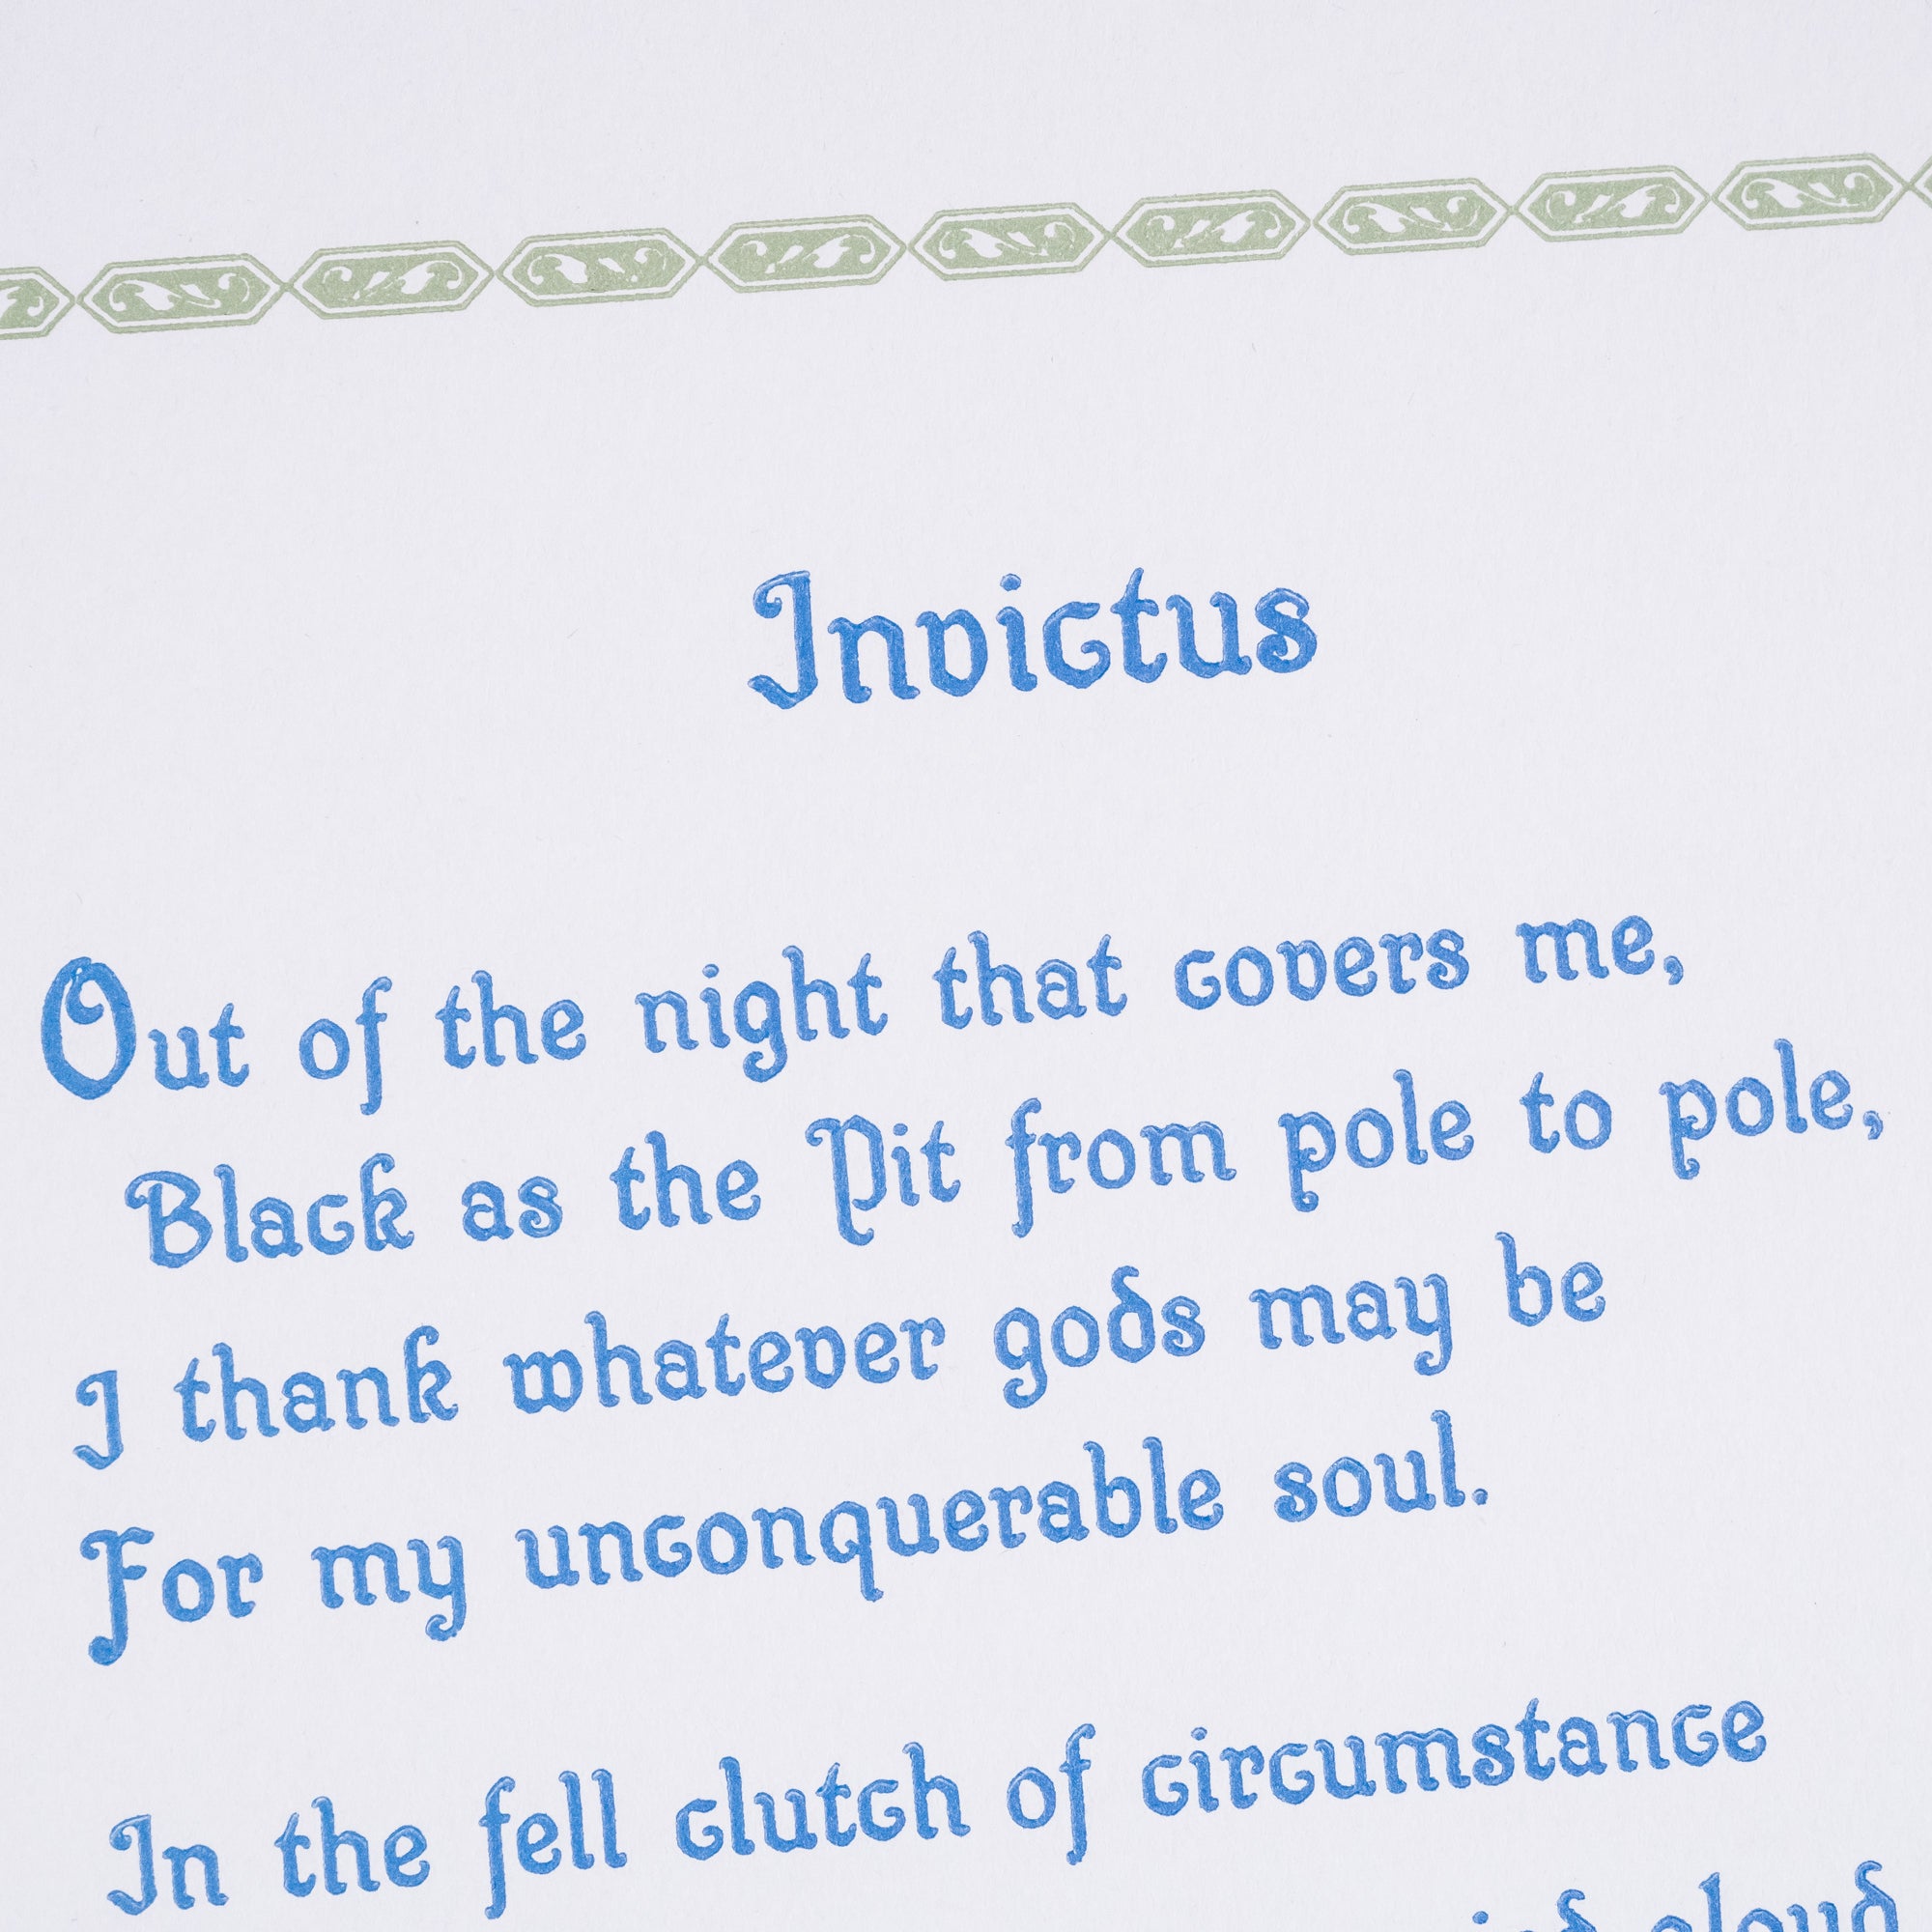 Invictus
Out of the night that covers me,
Black as the Pit from pole to pole,
I thank whatever gods may be
For my unconquerable soul.
In the fell clutch of circumstance
cloud